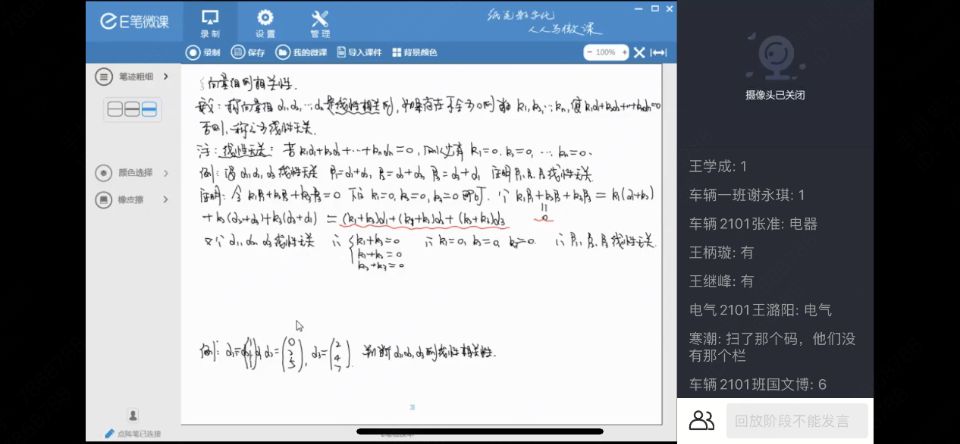 E笔微课
录制
设置
管理
纸笔数字化
人人写微课
录制 保存 我的微课 导入课件 背景颜色
100%
笔迹粗细
颜色选择
橡皮擦
点阵笔已连接
向量组的相关性
定义：称向量组 α₁,α₂,…,αₙ 是线性相关的，如果存在不全为0的数 k₁,k₂,…,kₙ，使 k₁α₁+k₂α₂+…+kₙαₙ=0
否则，称之为线性无关.
注：线性无关：若 k₁α₁+k₂α₂+…+kₙαₙ=0，则必有 k₁=0, k₂=0, … kₙ=0.
例：设 α₁,α₂,α₃ 线性无关 β₁=α₁+α₂, β₂=α₂+α₃, β₃=α₃+α₁ 证明 β₁,β₂,β₃ 线性无关
证明：令 k₁β₁+k₂β₂+k₃β₃=0 k₁=0, k₂=0, k₃=0 即可. k₁β₁+k₂β₂+k₃β₃ = k₁(α₁+α₂)
+k₂(α₂+α₃)+k₃(α₃+α₁) = (k₁+k₃)α₁+(k₁+k₂)α₂+(k₂+k₃)α₃
0
α₁,α₂,α₃ 线性无关 ∴ k₁+k₃=0 ∴ k₁=0, k₂=0, k₃=0. ∴ β₁,β₂,β₃ 线性无关
k₁+k₂=0
k₂+k₃=0
例：
0 2
2 4
5 7
α₃= 判断 α₁,α₂,α₃ 的线性相关性.
摄像头已关闭
王学成: 1
车辆一班谢永琪: 1
车辆2101张准: 电器
王柄璇: 有
王继峰: 有
电气2101王潞阳: 电气
寒潮: 扫了那个码，他们没
有那个栏
车辆2101班国文博: 6
回放阶段不能发言